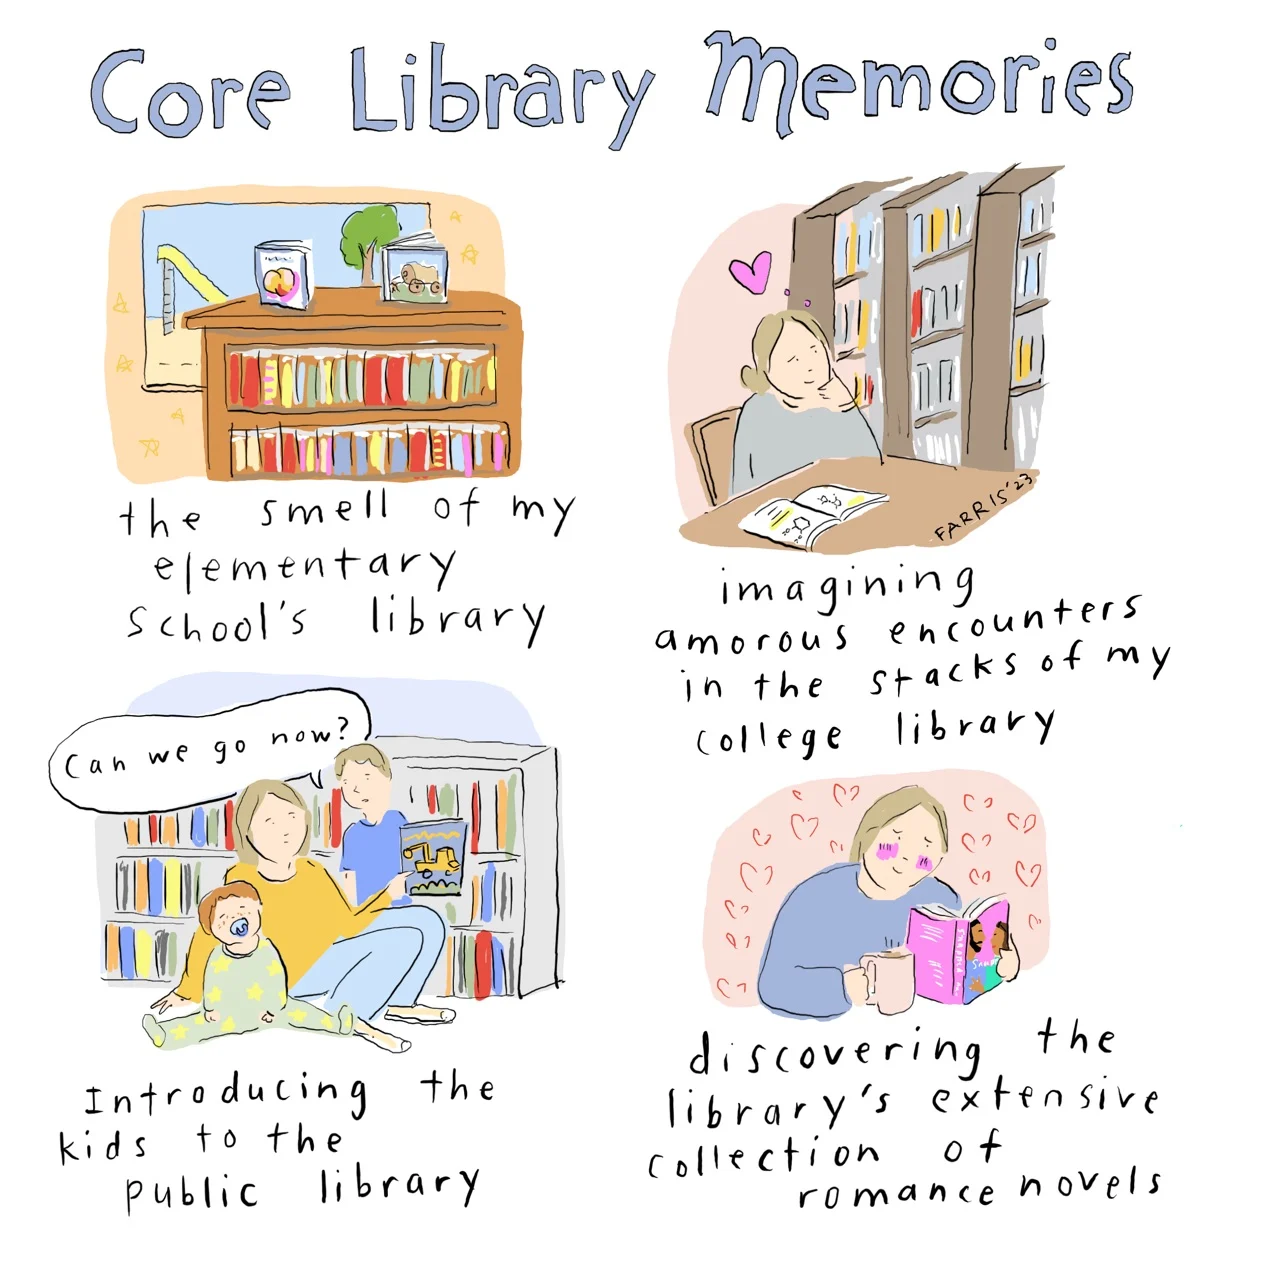 Core Library Memories
the smell of my
elementary
school's library
FARRIS '23
imagining
amorous encounters
in the stacks of my
college library
Can we go now?
Introducing the
kids to the
public library
discovering the
library's extensive
collection of
romance novels